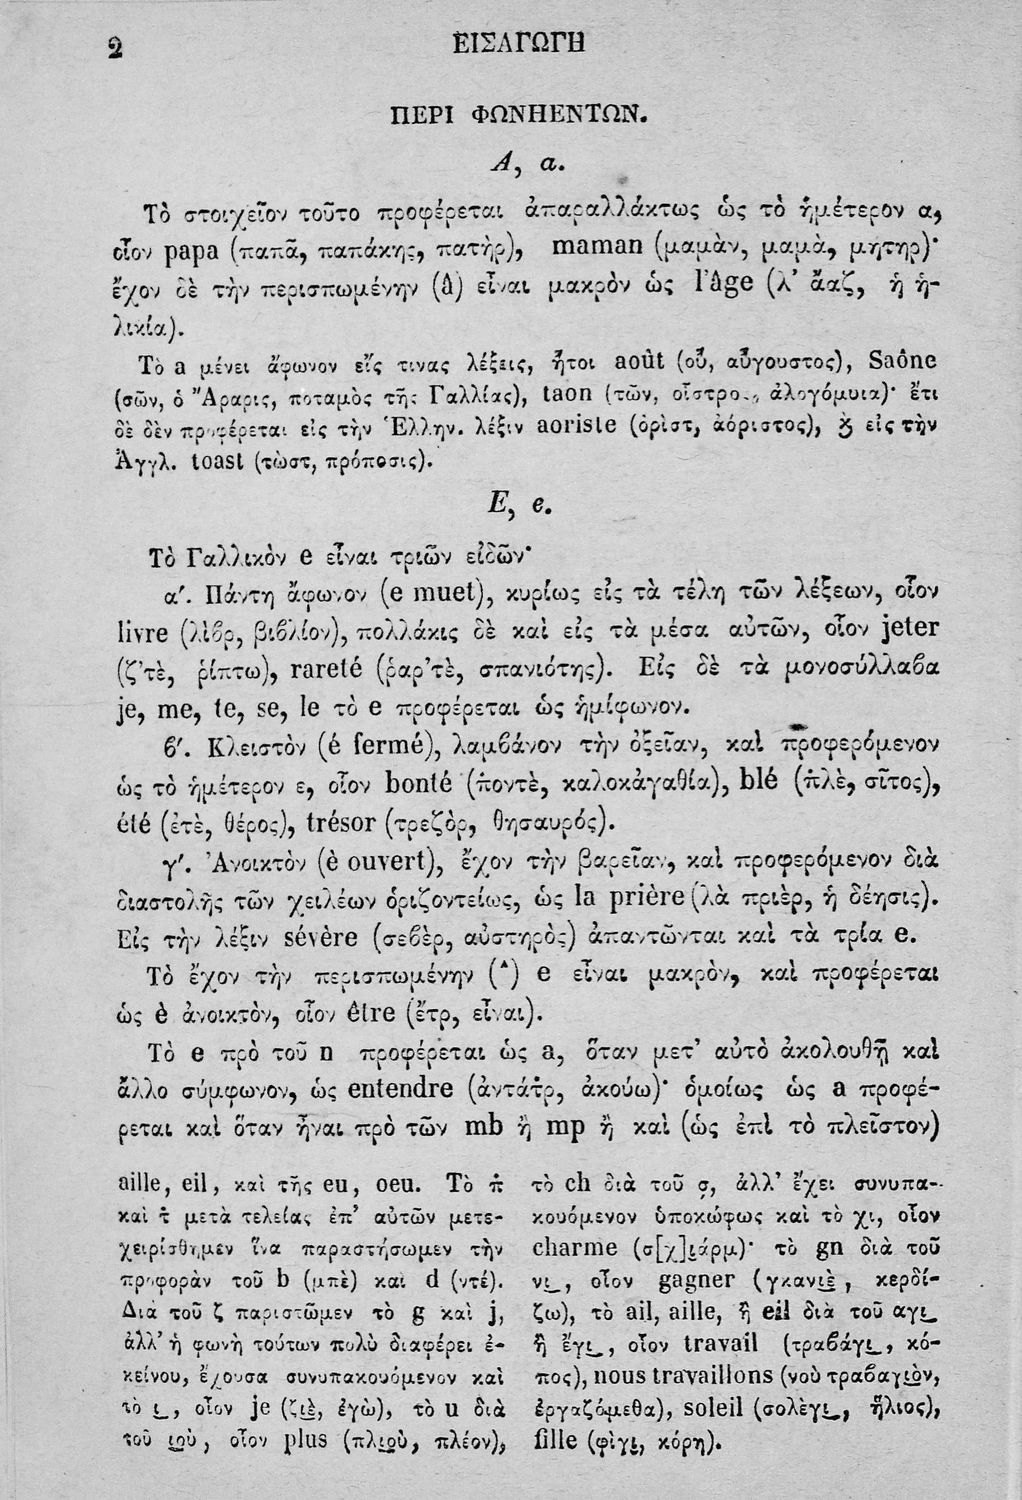 2
ΕΙΣΑΓΩΓΗ
ΠΕΡΙ ΦΩΝΗΕΝΤΩΝ.
A, a.
Τὸ στοιχεῖον τοῦτο προφέρεται ἀπαραλλάκτως ὡς τὸ ἡμέτερον α,
οἷον papa (παπᾶ, παπάκης, πατὴρ), maman (μαμὰν, μαμὰ, μήτηρ)·
ἔχον δὲ τὴν περισπωμένην (â) εἶναι μακρὸν ὡς l'âge (λ' ἄαζ, ἡ ἡ-
λικία).
Τὸ a μένει ἄφωνον εἴς τινας λέξεις, ἤτοι août (οὖ, αὔγουστος), Saône
(σῶν, ὁ Ἄραρις, ποταμὸς τῆς Γαλλίας), taon (τῶν, οἶστρος, ἀλογόμυια)· ἔτι
δὲ δὲν προφέρεται εἰς τὴν Ἑλλην. λέξιν aoriste (ὀρὶστ, ἀόριστος), ϗ εἰς τὴν
Ἀγγλ. toast (τὼστ, πρόποσις).
E, e.
Τὸ Γαλλικὸν e εἶναι τριῶν εἰδῶν·
α′. Πάντη ἄφωνον (e muet), κυρίως εἰς τὰ τέλη τῶν λέξεων, οἷον
livre (λὶϐρ, βιϐλίον), πολλάκις δὲ καὶ εἰς τὰ μέσα αὐτῶν, οἷον jeter
(ζ'τὲ, ῥίπτω), rareté (ῥαρ'τὲ, σπανιότης). Εἰς δὲ τὰ μονοσύλλαϐα
je, me, te, se, le τὸ e προφέρεται ὡς ἡμίφωνον.
ϐ′. Κλειστὸν (é fermé), λαμϐάνον τὴν ὀξεῖαν, καὶ προφερόμενον
ὡς τὸ ἡμέτερον ε, οἷον bonté (π̇οντὲ, καλοκἀγαθία), blé (π̇λὲ, σῖτος),
été (ἐτὲ, θέρος), trésor (τρεζὸρ, θησαυρός).
γ′. Ἀνοικτὸν (è ouvert), ἔχον τὴν βαρεῖαν, καὶ προφερόμενον διὰ
διαστολῆς τῶν χειλέων ὁριζοντείως, ὡς la prière (λὰ πριὲρ, ἡ δέησις).
Εἰς τὴν λέξιν sévère (σεϐὲρ, αὐστηρὸς) ἀπαντῶνται καὶ τὰ τρία e.
Τὸ ἔχον τὴν περισπωμένην (^) e εἶναι μακρὸν, καὶ προφέρεται
ὡς è ἀνοικτὸν, οἷον être (ἔτρ, εἶναι).
Τὸ e πρὸ τοῦ n προφέρεται ὡς a, ὅταν μετ' αὐτὸ ἀκολουθῇ καὶ
ἄλλο σύμφωνον, ὡς entendre (ἀντάτ̇ρ, ἀκούω)· ὁμοίως ὡς a προφέ-
ρεται καὶ ὅταν ἦναι πρὸ τῶν mb ἢ mp ἢ καὶ (ὡς ἐπὶ τὸ πλεῖστον)
aille, eil, καὶ τῆς eu, oeu. Τὸ π̇
καὶ τ̇ μετὰ τελείας ἐπ' αὐτῶν μετε-
χειρίσθημεν ἵνα παραστήσωμεν τὴν
προφορὰν τοῦ b (μπὲ) καὶ d (ντέ).
Διὰ τοῦ ζ παριστῶμεν τὸ g καὶ j,
ἀλλ' ἡ φωνὴ τούτων πολὺ διαφέρει ἐ-
κείνου, ἔχουσα συνυπακουόμενον καὶ
τὸ ι͜, οἷον je (ζι͜ὲ, ἐγὼ), τὸ u διὰ
τοῦ ι͜οὺ, οἷον plus (πλι͜οὺ, πλέον),
τὸ ch διὰ τοῦ σ̣, ἀλλ' ἔχει συνυπα-
κουόμενον ὑποκώφως καὶ τὸ χι, οἷον
charme (σ[χ]ι͜άρμ)· τὸ gn διὰ τοῦ
νι͜, οἷον gagner (γκανι͜ὲ, κερδί-
ζω), τὸ ail, aille, ἢ eil διὰ τοῦ αγι͜
ἢ ἔγι͜, οἷον travail (τραϐάγι͜, κό-
πος), nous travaillons (νοὺ τραϐαγι͜ὸν,
ἐργαζόμεθα), soleil (σολὲγι͜, ἥλιος),
fille (φὶγι͜, κόρη).